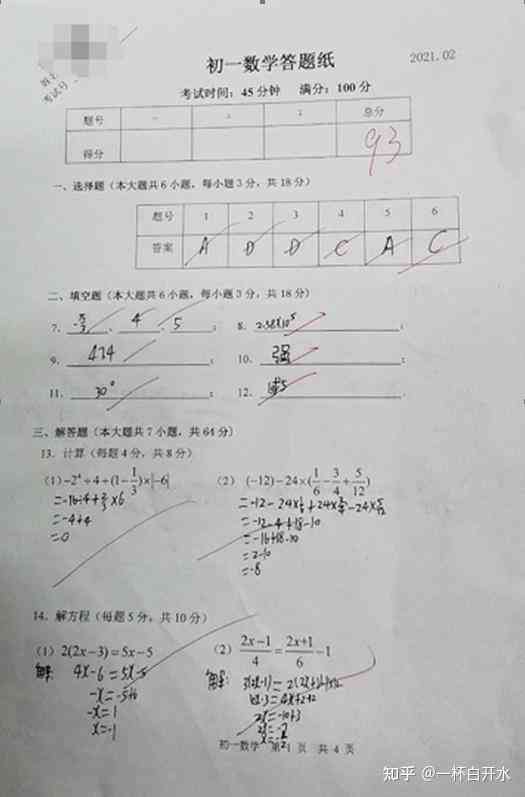 姓名
考试号
初一数学答题纸
2021.02
考试时间：45分钟 满分：100分
题号 一 二 三 总分
得分 93
一、选择题（本大题共6小题，每小题3分，共18分）
题号 1 2 3 4 5 6
答案 A D D C A C
二、填空题（本大题共6小题，每小题3分，共18分）
7. 4 、 5 ； 8. 2.38×10⁵ ；
9. 434 ； 10. 强 ；
11. 30° ； 12.
三、解答题（本大题共7小题，共64分）
13. 计算（每题4分，共8分）
(1) -2⁴÷4+(1-1/3)×|-6| (2) (-12)-24×(1/6-3/4+5/12)
=-16÷4+2/3×6 =-12-24×1/6+24×3/4-24×5/12
=-4+4 =-12-4+18-10
=0 =-16+18-10
=2-10
=-8
14. 解方程（每题5分，共10分）
(1) 2(2x-3)=5x-5 (2) (2x-1)/4=(2x+1)/6-1
解: 4x-6=5x-5 解: 3(2x-1)=2(2x+1)-12
-x=-5+6 6x-3=4x+2-12
-x=1 2x=-10+3
x=-1
初一数学 第1页 共4页
知乎 @一杯白开水